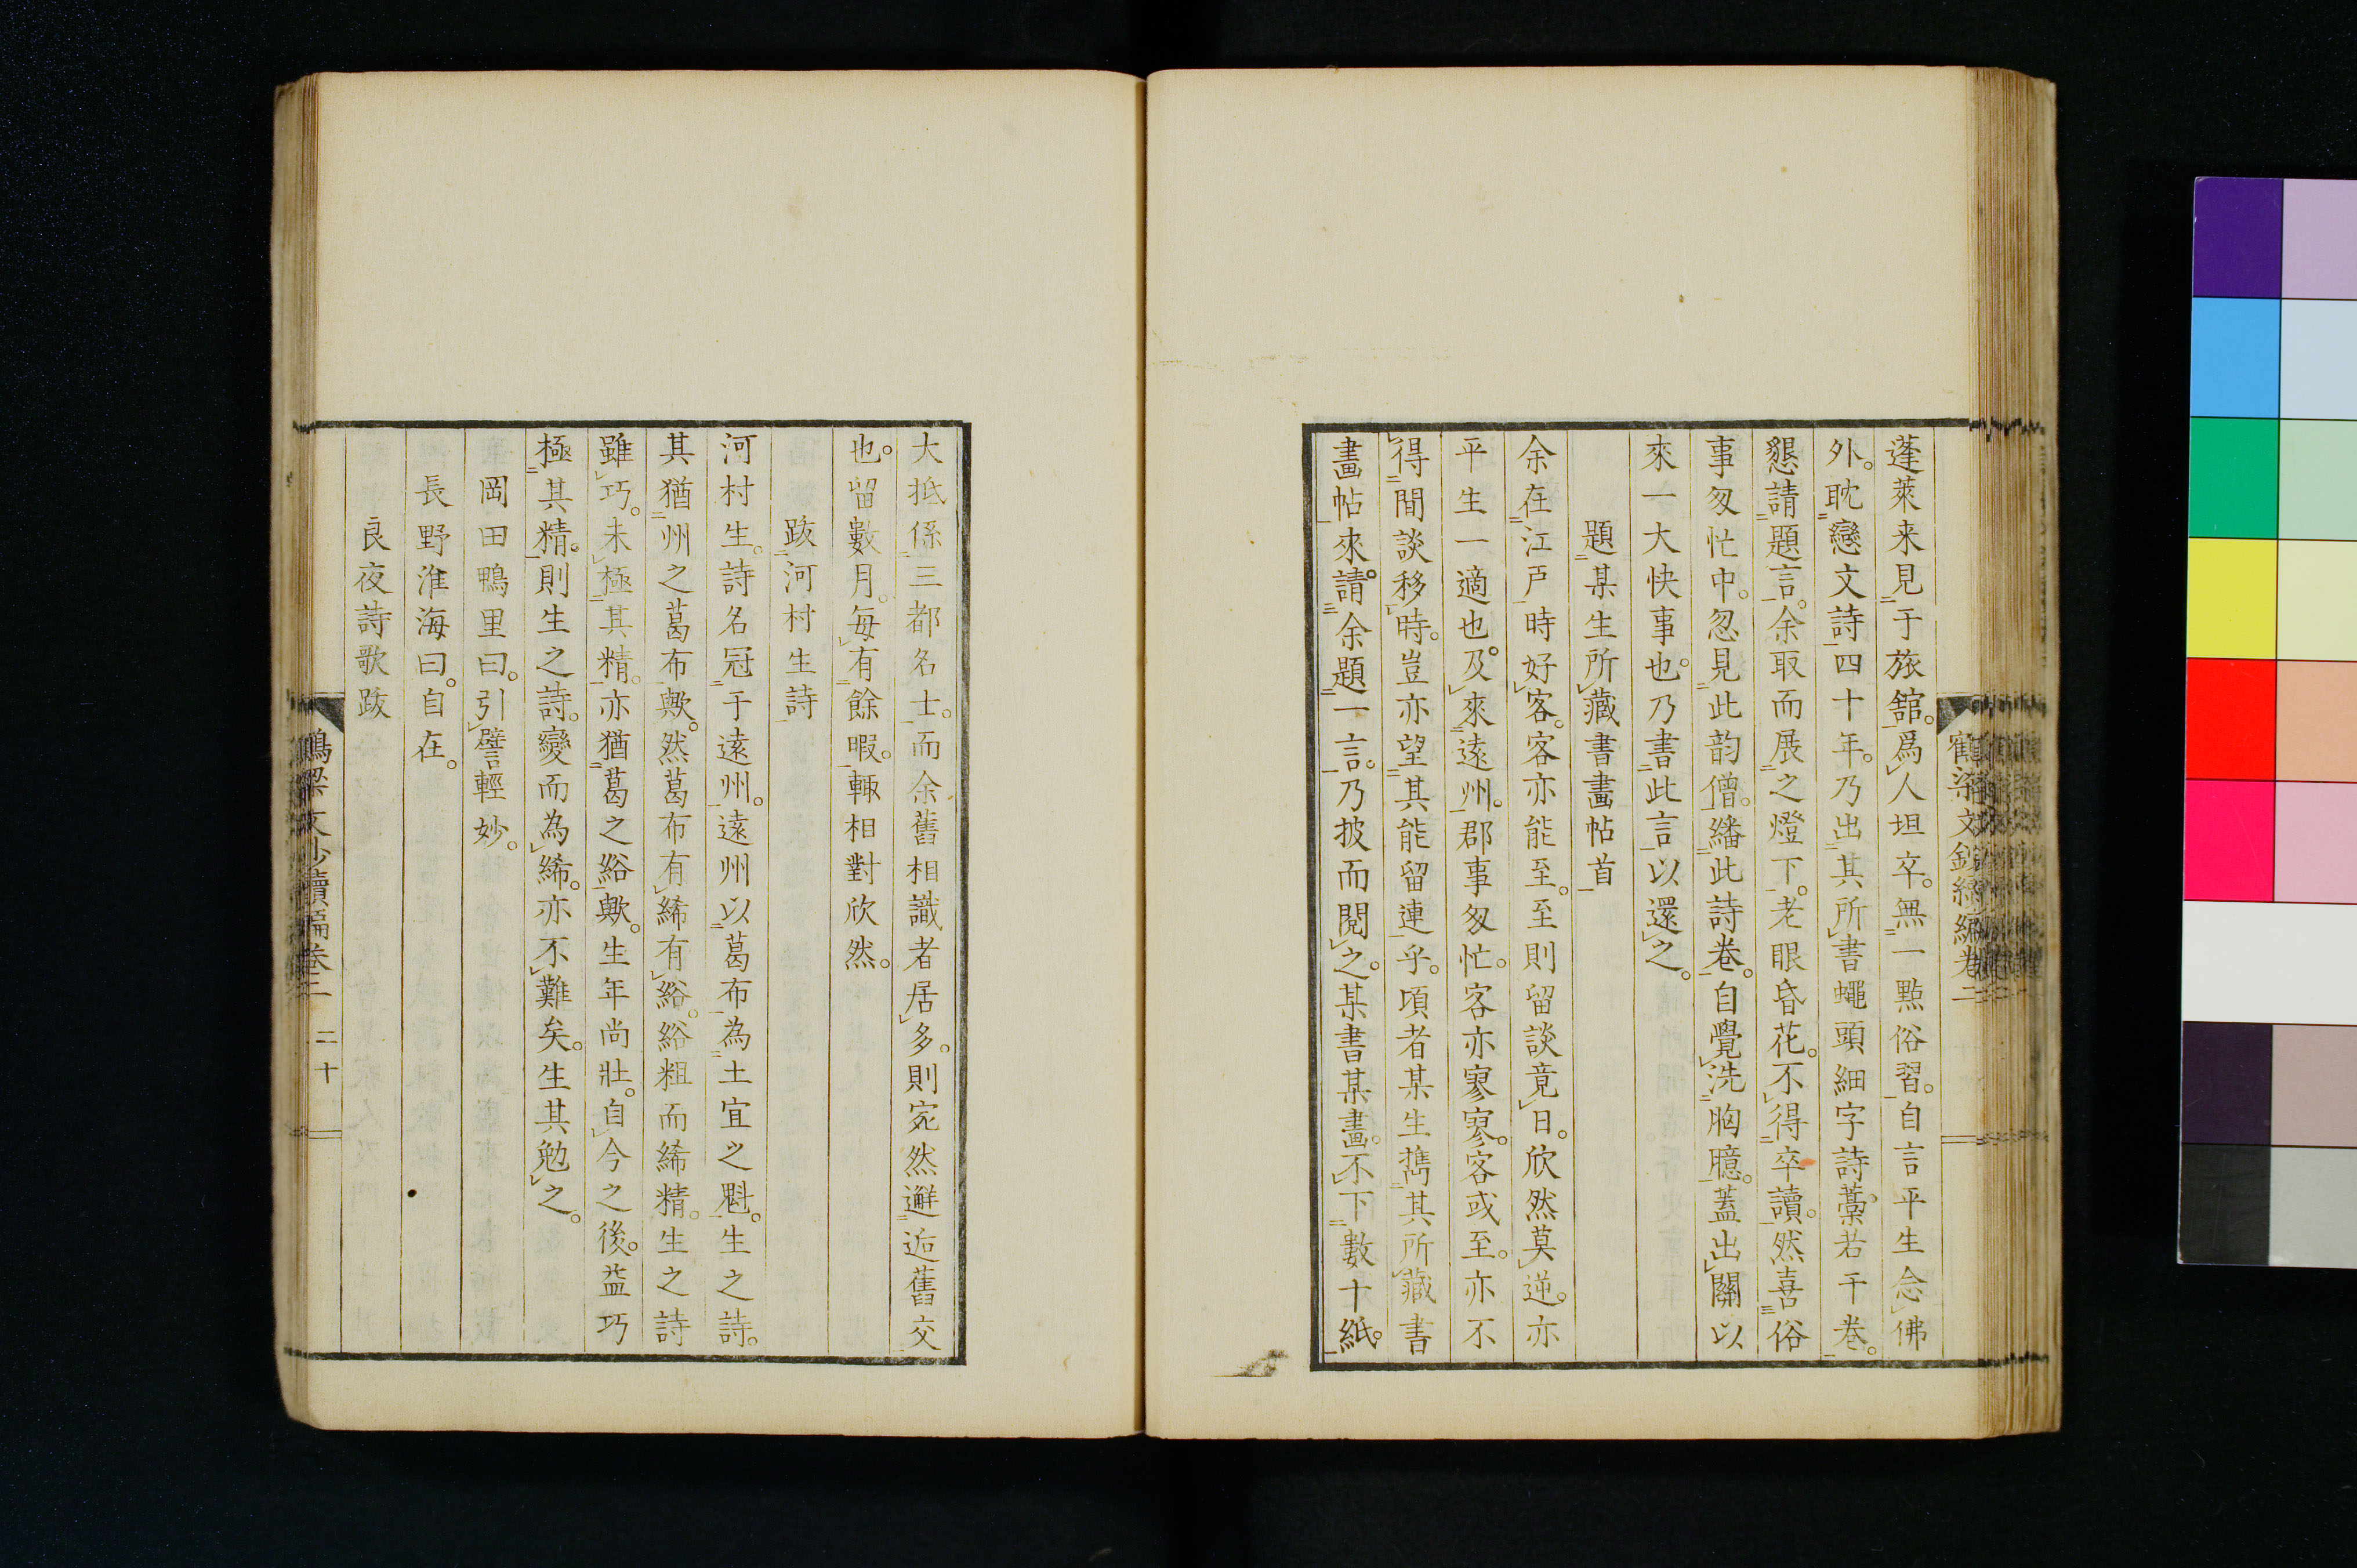 蓬萊来見于旅舘。爲人坦卒。無一點俗習。自言平生念佛
外。耽戀文詩四十年。乃出其所書蠅頭細字詩藁若干巻。
懇請題言。余取而展之燈下。老眼昏花。不得卒讀。然喜俗
事匆忙中。忽見此韵僧。繙此詩巻。自覺洗胸臆。蓋出關以
來一大快事也。乃書此言以還之。
題某生所藏書畫帖首
余在江戸時好客。客亦能至。至則留談竟日。欣然莫逆。亦
平生一適也。及來遠州。郡事匆忙。客亦寥寥。客或至。亦不
得間談移時。豈亦望其能留連乎。頃者某生携其所藏書
畫帖來。請余題一言。乃披而閱之。某書某畫。不下數十紙。
大抵係三都名士。而余舊相識者居多。則宛然邂逅舊交
也。留數月。毎有餘暇。輙相對欣然。
跋河村生詩
河村生。詩名冠于遠州。遠州以葛布為土宜之魁。生之詩。
其猶州之葛布歟。然葛布有絺有綌。綌粗而絺精。生之詩
雖巧。未極其精。亦猶葛之綌歟。生年尚壯。自今之後。益巧
極其精。則生之詩。變而為絺。亦不難矣。生其勉之。
岡田鴨里曰。引譬輕妙。
長野淮海曰。自在。
良夜詩歌跋
鶴梁文鈔續編巻二 二十